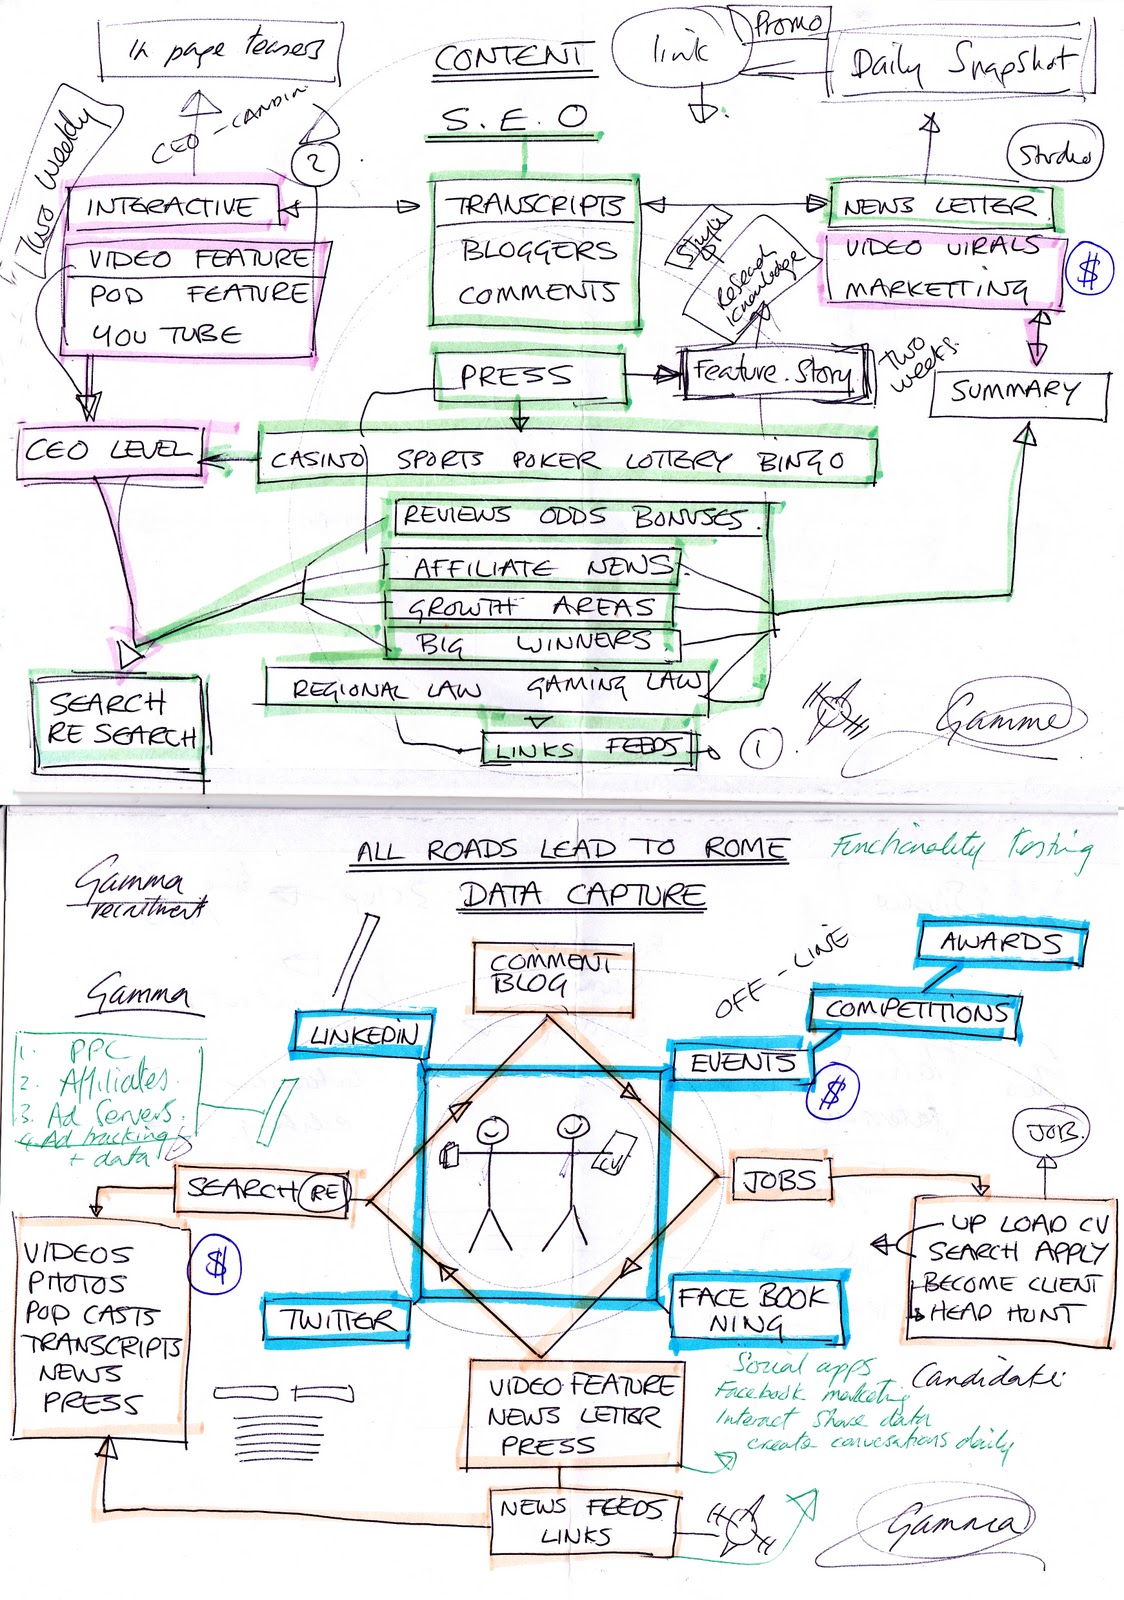 In page teasers
CONTENT
S.E.O
link
Promo
Daily Snapshot
Two weekly
CEO - CANDID
2
Studio
INTERACTIVE
VIDEO FEATURE
POD FEATURE
YOU TUBE
TRANSCRIPTS
BLOGGERS
COMMENTS
NEWS LETTER
VIDEO VIRALS
MARKETTING
$
Research
knowledge
PRESS
Feature.Story
TWO
weeks.
SUMMARY
CEO LEVEL
CASINO SPORTS POKER LOTTERY BINGO
REVIEWS ODDS BONUSES.
AFFILIATE NEWS.
GROWTH AREAS
BIG WINNERS.
REGIONAL LAW GAMING LAW
SEARCH
RE SEARCH
LINKS FEEDS
1
Gamma
ALL ROADS LEAD TO ROME
DATA CAPTURE
Functionality Testing
Gamma
recruitment
Gamma
1. PPC
2. Affiliates.
3. Ad Servers.
4. Ad tracking
+ data
COMMENT
BLOG
OFF-LINE
AWARDS
COMPETITIONS
EVENTS
$
LINKEDIN
CV
SEARCH RE
JOBS
JOB.
VIDEOS
PHOTOS
POD CASTS
TRANSCRIPTS
NEWS
PRESS
$
UP LOAD CV
SEARCH APPLY
BECOME CLIENT
HEAD HUNT
Candidate
TWITTER
FACE BOOK
NING
VIDEO FEATURE
NEWS LETTER
PRESS
Social apps
Facebook marketing
Interact share data
create conversations daily
NEWS FEEDS
LINKS
Gamma